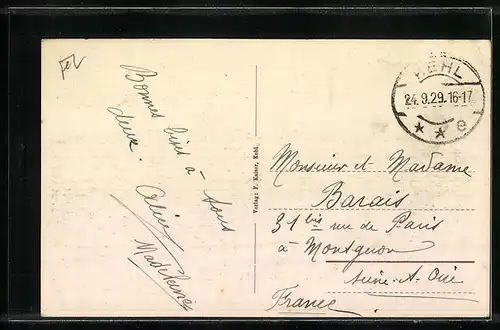 KEHL
24.9.29.16-17
* * e
Bonnes bises à tous
deux.
Alice
Madeleine
Verlag: F. Kaiser, Kehl.
Monsieur et Madame
Barais
31 bis rue de Paris
à Montgeron
Seine-et-Oise
France